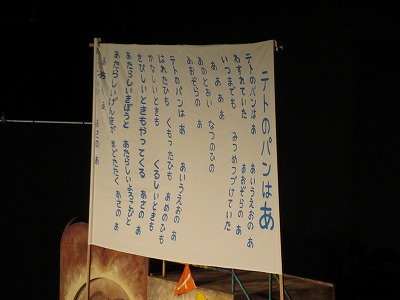 テトのパンは あ
テトのパンは あ あいうえおの あ
わすれていた あおぞらの あ
いつまでも みつめつづけていた
あ あ あ あ
あのとおい なつのひの
あおぞらの あ
テトのパンは あ あいうえおの あ
はれたひも くもったひも あめのひも
かなしいときも くるしいときも
さびしいときもやってくる あさの あ
あたらしいきぼうと あたらしいよろこびと
あたらしいげんきが まどたたく あさの あ
あ あ あ あ あさの あ